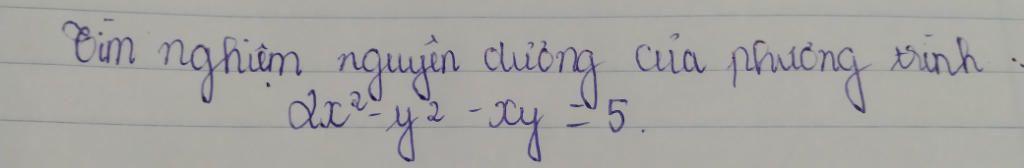 Tìm nghiệm nguyên dương của phương trình.
2x² - y² - xy = 5.